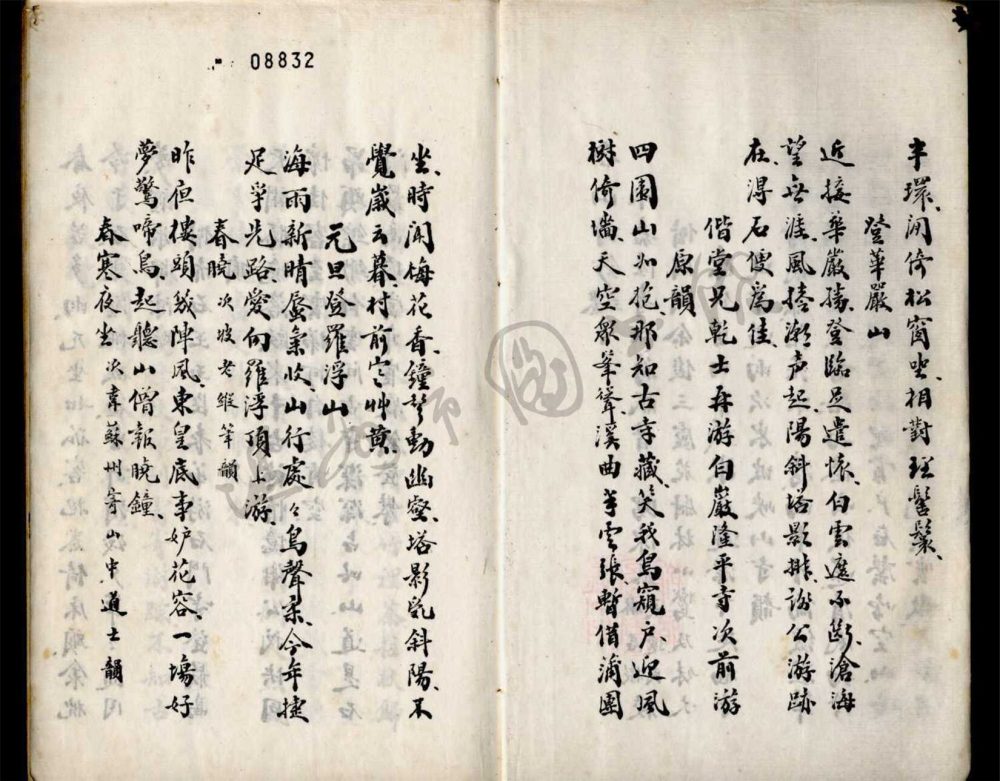 半環、閒倚松窗坐、相對理髻鬟、
登華嚴山
近接華嚴勝、登臨足遣懷、白雲遮不斷、滄海
望無涯、風捲潮声起、陽斜塔影排、訪公游跡
在、得石便為佳、
偕堂兄乾士再游白巖隆平寺次前游
原韻
四圍山如抱、那知古寺藏、笑我鳥窺戶、迎風
樹倚墻、天空眾峯聳、溪曲半雲張、暫借蒲團
08832
坐、時聞梅花香、鐘聲動幽壑、塔影亂斜陽、不
覺歲云暮、村前艸黃、
元旦登羅浮山
海雨新晴蜃氣收、山行處々鳥聲柔、今年捷
足爭先路、愛向羅浮頂上游、
春曉 次坡老縱筆韻
昨夜樓頭幾陣風、東皇底事妒花容、一塲好
夢驚啼鳥、起聽山僧報曉鐘、
春寒夜坐 次韋蘇州寄山中道士韻